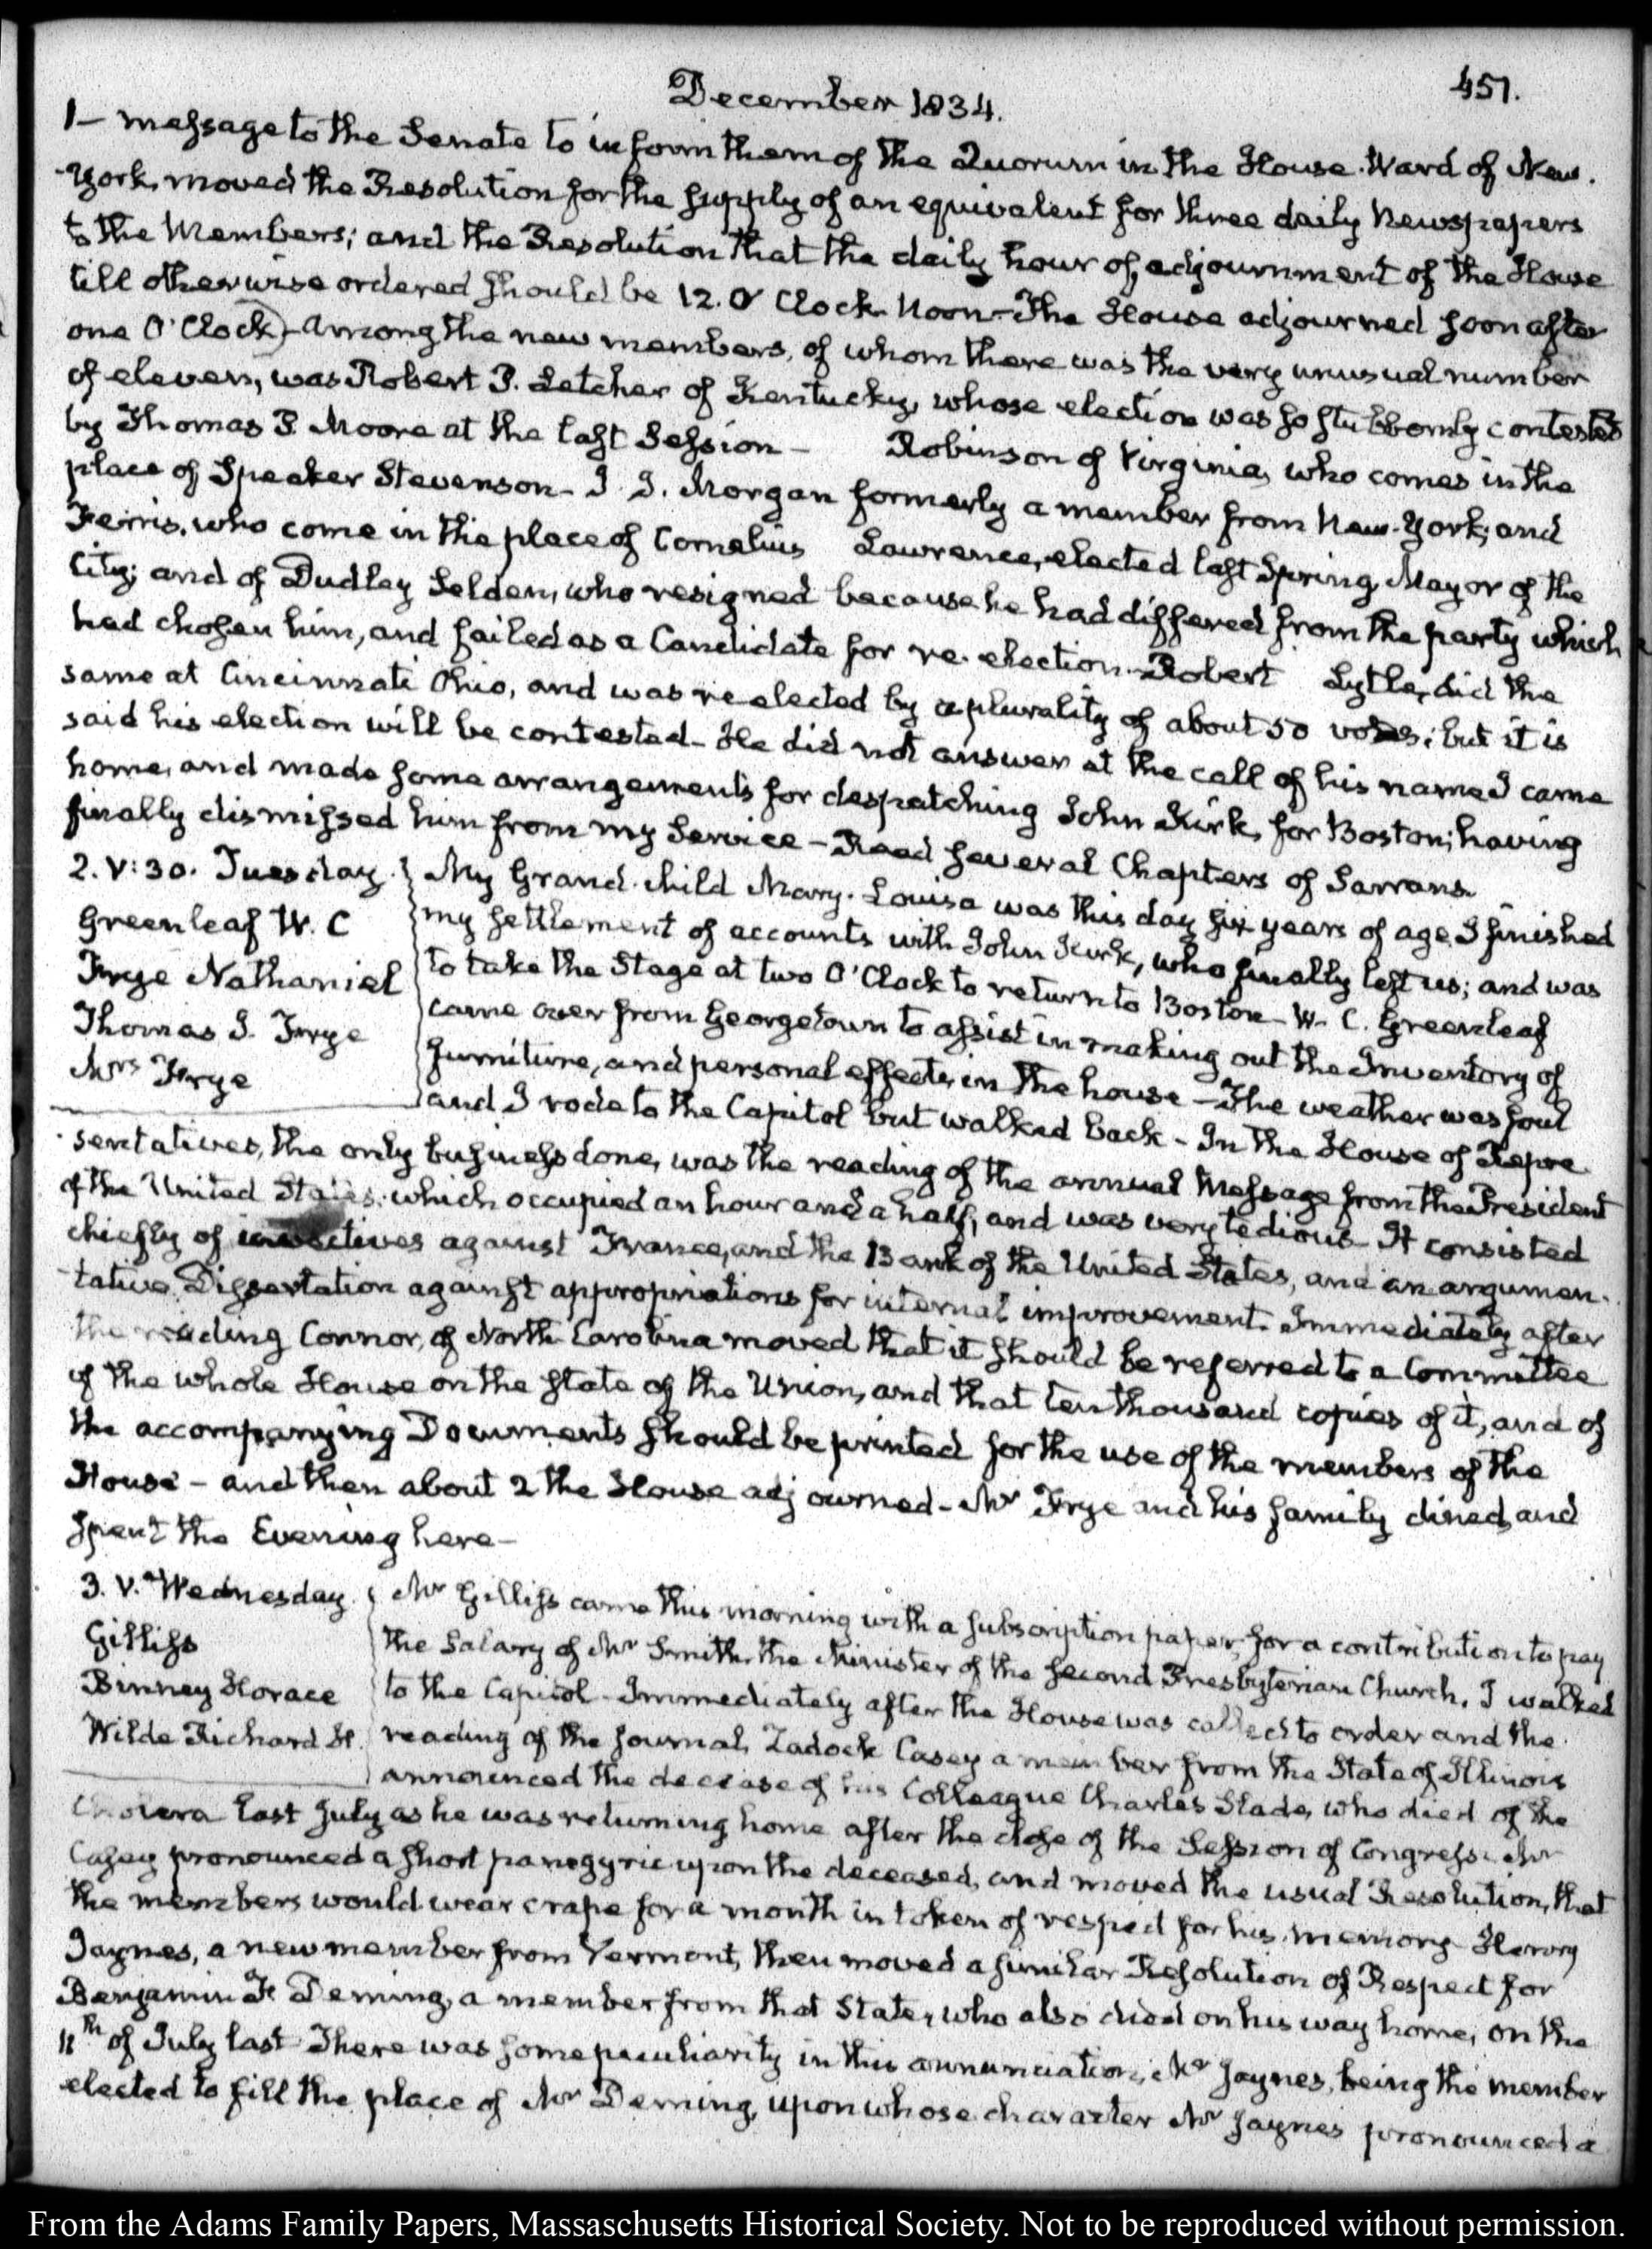 December 1834.
457.
1— message to the Senate to inform them of the Quorum in the House. Ward of New.
-York, moved the Resolution for the supply of an equivalent for three daily Newspapers
to the Members; and the Resolution that the daily hour of adjournment of the House
till otherwise ordered should be 12. O'Clock Noon—The House adjourned soon after
one O'Clock)—Among the new members, of whom there was the very unusual number
of eleven, was Robert P. Letcher of Kentucky, whose election was so stubbornly contested
by Thomas P. Moore at the last Session— Robinson of Virginia, who comes in the
place of Speaker Stevenson—J. J. Morgan formerly a member from New-York; and
Ferris, who come in the place of Cornelius Lawrence, elected last Spring, Mayor of the
City; and of Dudley Selden, who resigned because he had differed from the party which
had chosen him, and failed as a Candidate for re-election. Robert Lytle, did the
same at Cincinnati Ohio, and was re elected by a plurality of about 50 votes; but it is
said his election will be contested—He did not answer at the call of his name I came
home, and made some arrangements for despatching John Kirk, for Boston; having
finally dismissed him from my Service—Read several Chapters of Sarrans.
2. V:30. Tuesday.
Greenleaf W. C
Frye Nathaniel
Thomas J. Frye
Mrs Frye
My Grand-child Mary-Louisa was this day six years of age I finished
my settlement of accounts with John Kirk, who finally left us; and was
to take the Stage at two O'Clock to return to Boston—W. C. Greenleaf
came over from Georgetown to assist in making out the Inventory of
furniture, and personal effects, in the house—The weather was foul
and I rode to the Capitol but walked back—In the House of Repre-
sentatives, the only business done, was the reading of the annual Message from the President
of the United States, which occupied an hour and a half, and was very tedious—It consisted
chiefly of invectives against France, and the Bank of the United States, and an argumen-
tative Dissertation against appropriations for internal improvement. Immediately after
the reading Connor, of North-Carolina moved that it should be referred to a Committee
of the whole House on the state of the Union, and that ten thousand copies of it, and of
the accompanying Documents should be printed for the use of the members of the
House—and then about 2 the House adjourned—Mr Frye and his family dined, and
spent the Evening here—
3. V. Wednesday.
Gilliss
Binney Horace
Wilde Richard H.
Mr Gilliss came this morning with a subscription paper, for a contribution to pay
the Salary of Mr Smith, the Minister of the second Presbyterian Church, I walked
to the Capitol—Immediately after the House was called to order and the
reading of the journal, Zadock Casey a member from the State of Illinois
announced the decease of his Colleague Charles Slade, who died of the
Cholera last July as he was returning home after the close of the Session of Congress. Mr
Casey pronounced a short panegyric upon the deceased, and moved the usual Resolution, that
the members would wear crape for a month in token of respect for his memory—Henry
Jaynes, a new member from Vermont, then moved a similar Resolution of Respect for
Benjamin F. Deming, a member from that State, who also died on his way home, on the
11th of July last—There was some peculiarity in this annunciation, Mr Jaynes, being the member
elected to fill the place of Mr Deming, upon whose character Mr Jaynes pronounced a
From the Adams Family Papers, Massachusetts Historical Society. Not to be reproduced without permission.